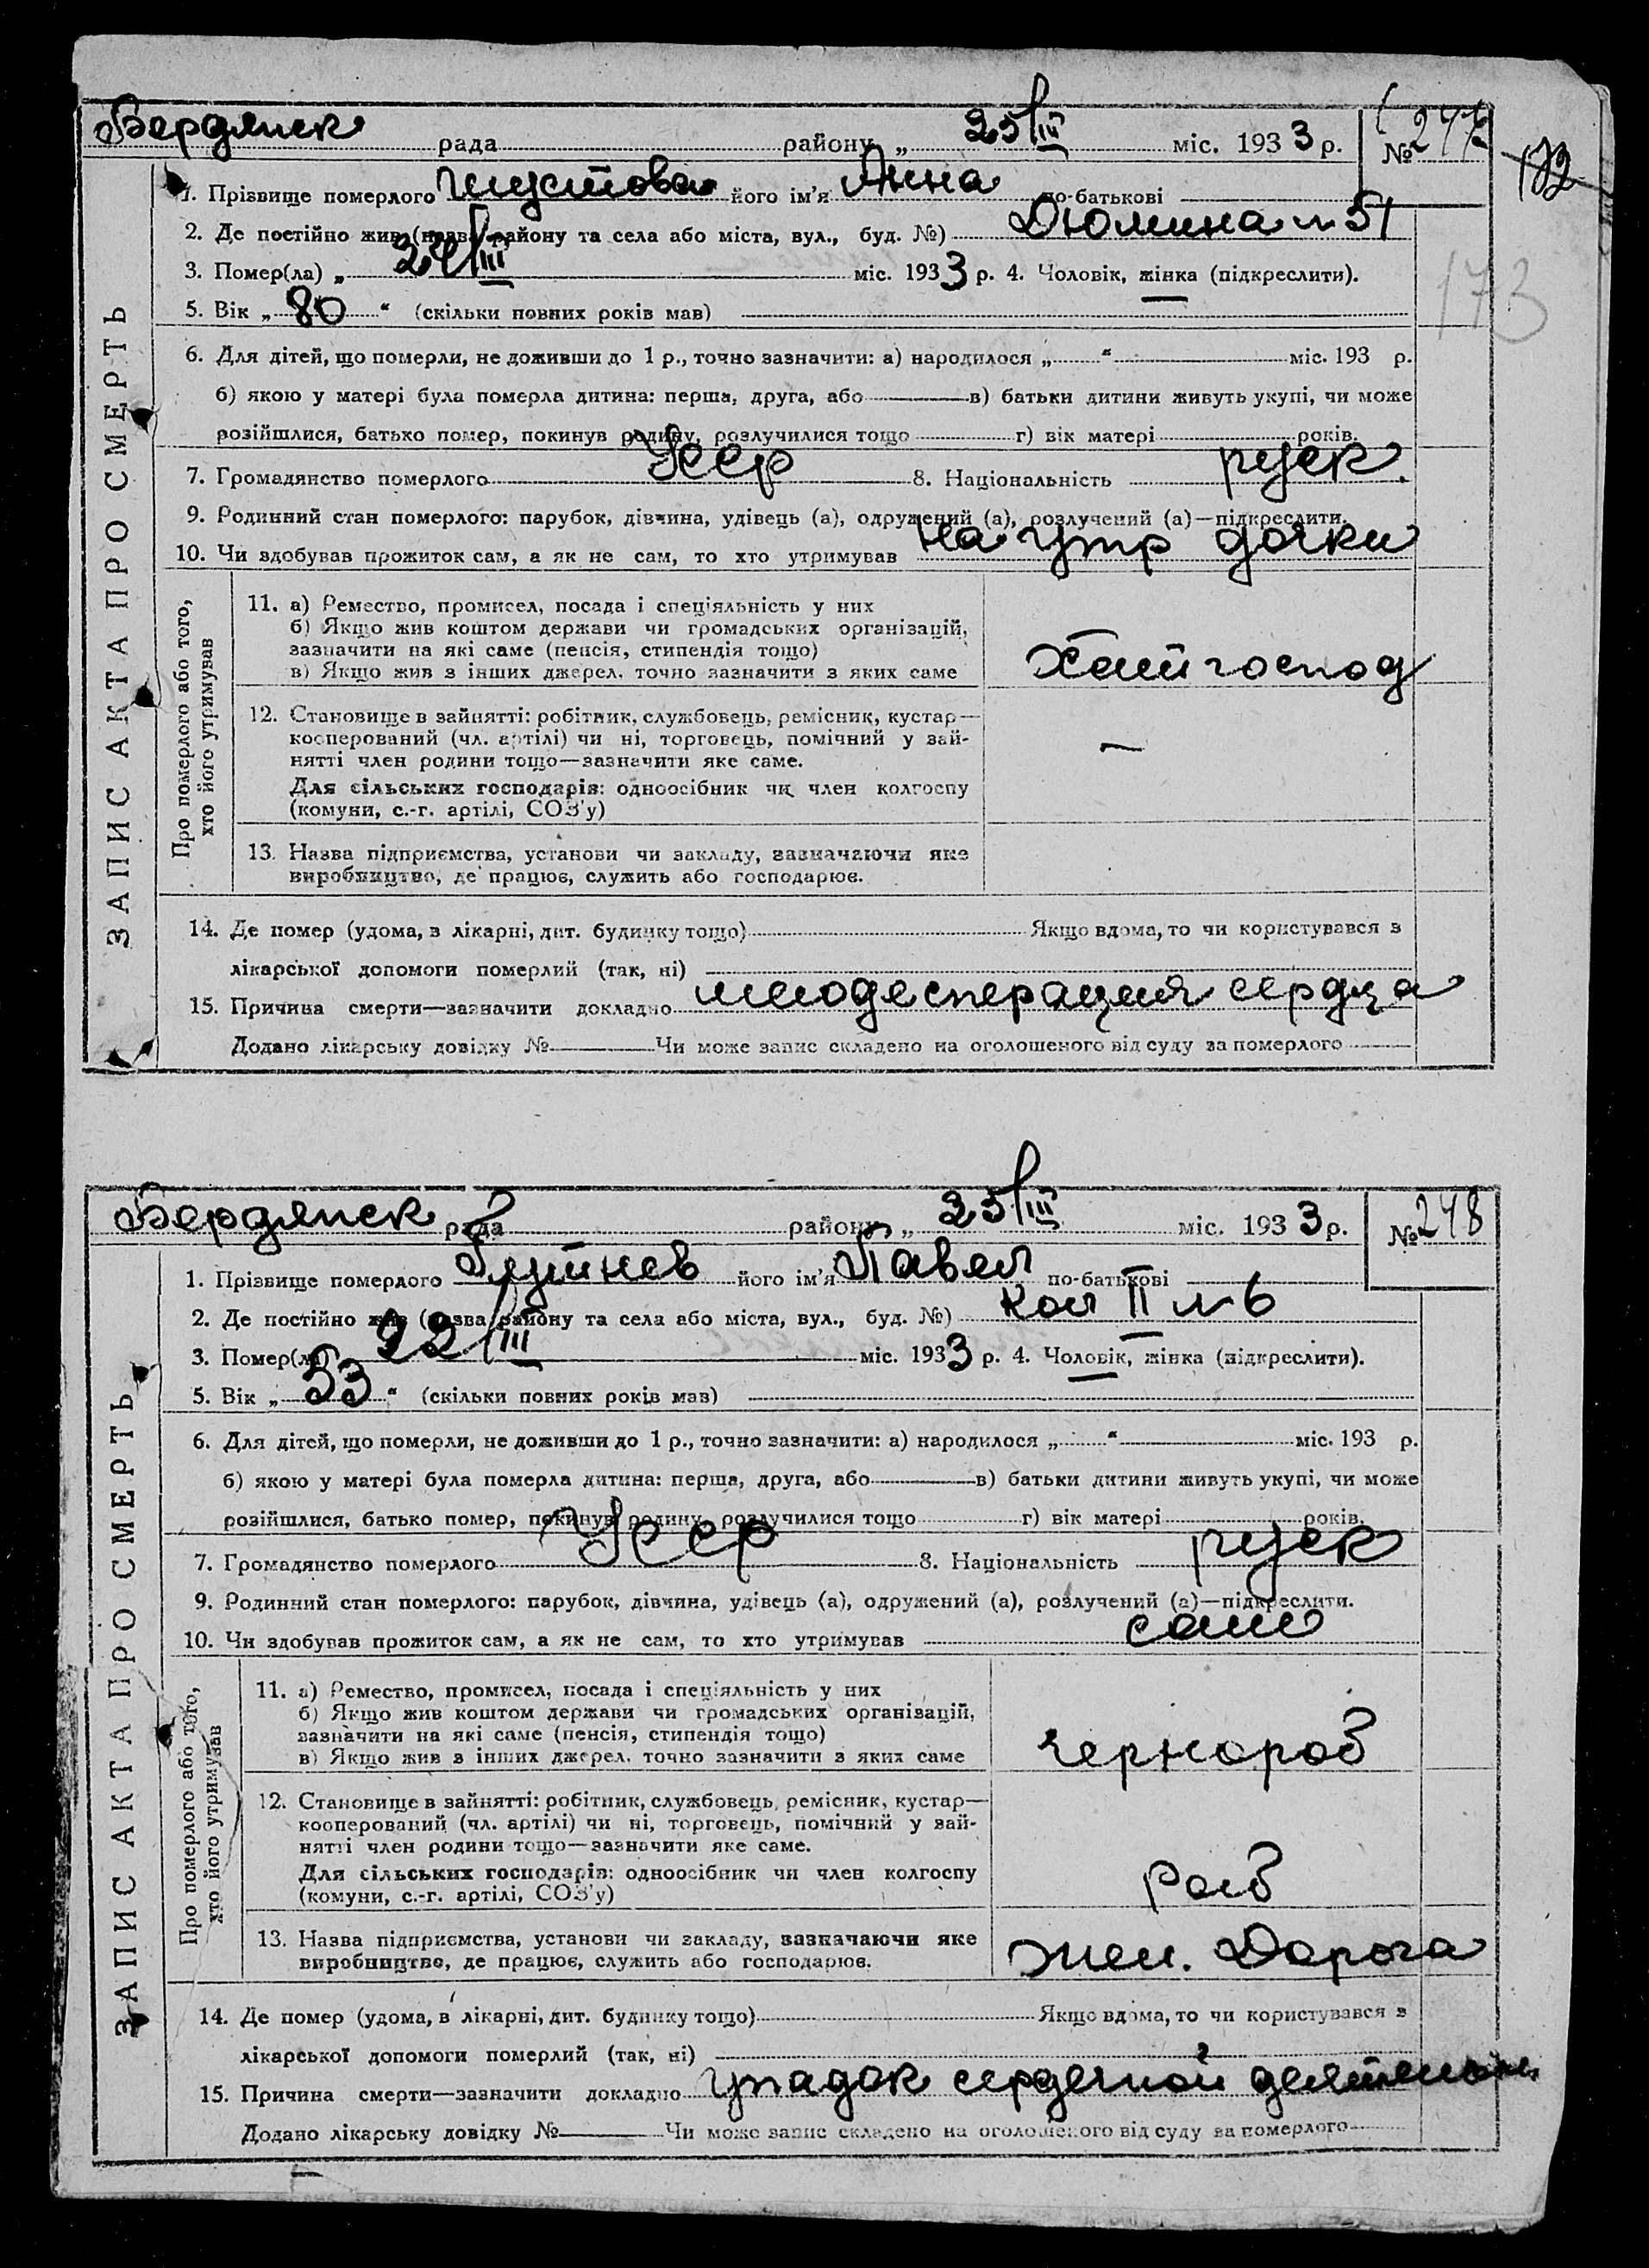 Бердянск рада району „ 25/III міс. 1933 р. № 247
172
1. Прізвище померлого Шустова його ім'я Анна по-батькові
2. Де постійно жив (назва району та села або міста, вул., буд. №) Дюмина № 51
3. Помер(ла) „ 24/III міс. 1933 р. 4. Чоловік, жінка (підкреслити).
173
5. Вік „ 80 “ (скільки повних років мав)
6. Для дітей, що померли, не доживши до 1 р., точно зазначити: а) народилося „ “ міс. 193 р.
б) якою у матері була померла дитина: перша, друга, або в) батьки дитини живуть укупі, чи може
розійшлися, батько помер, покинув родину, розлучилися тощо г) вік матері років.
7. Громадянство померлого Усср 8. Національність руск
9. Родинний стан померлого: парубок, дівчина, удівець (а), одружений (а), розлучений (а)—підкреслити.
10. Чи здобував прожиток сам, а як не сам, то хто утримував на утр дочки
ЗАПИС АКТА ПРО СМЕРТЬ
Про померлого або того, хто його утримував
11. а) Ремество, промисел, посада і спеціяльність у них
б) Якщо жив коштом держави чи громадських організацій,
зазначити на які саме (пенсія, стипендія тощо)
в) Якщо жив з інших джерел, точно зазначити з яких саме
господ
12. Становище в зайнятті: робітник, службовець, ремісник, кустар—
кооперований (чл. артілі) чи ні, торговець, помічний у зай-
нятті член родини тощо—зазначити яке саме. —
Для сільських господарів: одноосібник чи член колгоспу
(комуни, с.-г. артілі, СОЗ'у)
13. Назва підприємства, установи чи закладу, зазначаючи яке
виробництво, де працює, служить або господарює.
14. Де помер (удома, в лікарні, дит. будинку тощо) Якщо вдома, то чи користувався з
лікарської допомоги померлий (так, ні)
15. Причина смерти—зазначити докладно сердца
Додано лікарську довідку № Чи може запис складено на оголошеного від суду за померлого
Бердянск рада району „ 25/III міс. 1933 р. № 248
1. Прізвище померлого його ім'я Павел по-батькові
2. Де постійно жив (назва району та села або міста, вул., буд. №) Кол II № 6
3. Помер(ла) 22/III міс. 1933 р. 4. Чоловік, жінка (підкреслити).
5. Вік „ 53 “ (скільки повних років мав)
6. Для дітей, що померли, не доживши до 1 р., точно зазначити: а) народилося „ “ міс. 193 р.
б) якою у матері була померла дитина: перша, друга, або в) батьки дитини живуть укупі, чи може
розійшлися, батько помер, покинув родину, розлучилися тощо г) вік матері років.
7. Громадянство померлого Усср 8. Національність руск
9. Родинний стан померлого: парубок, дівчина, удівець (а), одружений (а), розлучений (а)—підкреслити.
10. Чи здобував прожиток сам, а як не сам, то хто утримував сам
ЗАПИС АКТА ПРО СМЕРТЬ
Про померлого або того, хто його утримував
11. а) Ремество, промисел, посада і спеціяльність у них
б) Якщо жив коштом держави чи громадських організацій,
зазначити на які саме (пенсія, стипендія тощо)
в) Якщо жив з інших джерел, точно зазначити з яких саме
чернороб
12. Становище в зайнятті: робітник, службовець, ремісник, кустар—
кооперований (чл. артілі) чи ні, торговець, помічний у зай-
нятті член родини тощо—зазначити яке саме.
Для сільських господарів: одноосібник чи член колгоспу
(комуни, с.-г. артілі, СОЗ'у)
Роб
13. Назва підприємства, установи чи закладу, зазначаючи яке
виробництво, де працює, служить або господарює.
Жел. Дорога
14. Де помер (удома, в лікарні, дит. будинку тощо) Якщо вдома, то чи користувався з
лікарської допомоги померлий (так, ні)
15. Причина смерти—зазначити докладно упадок сердечной
Додано лікарську довідку № Чи може запис складено на оголошеного від суду за померлого